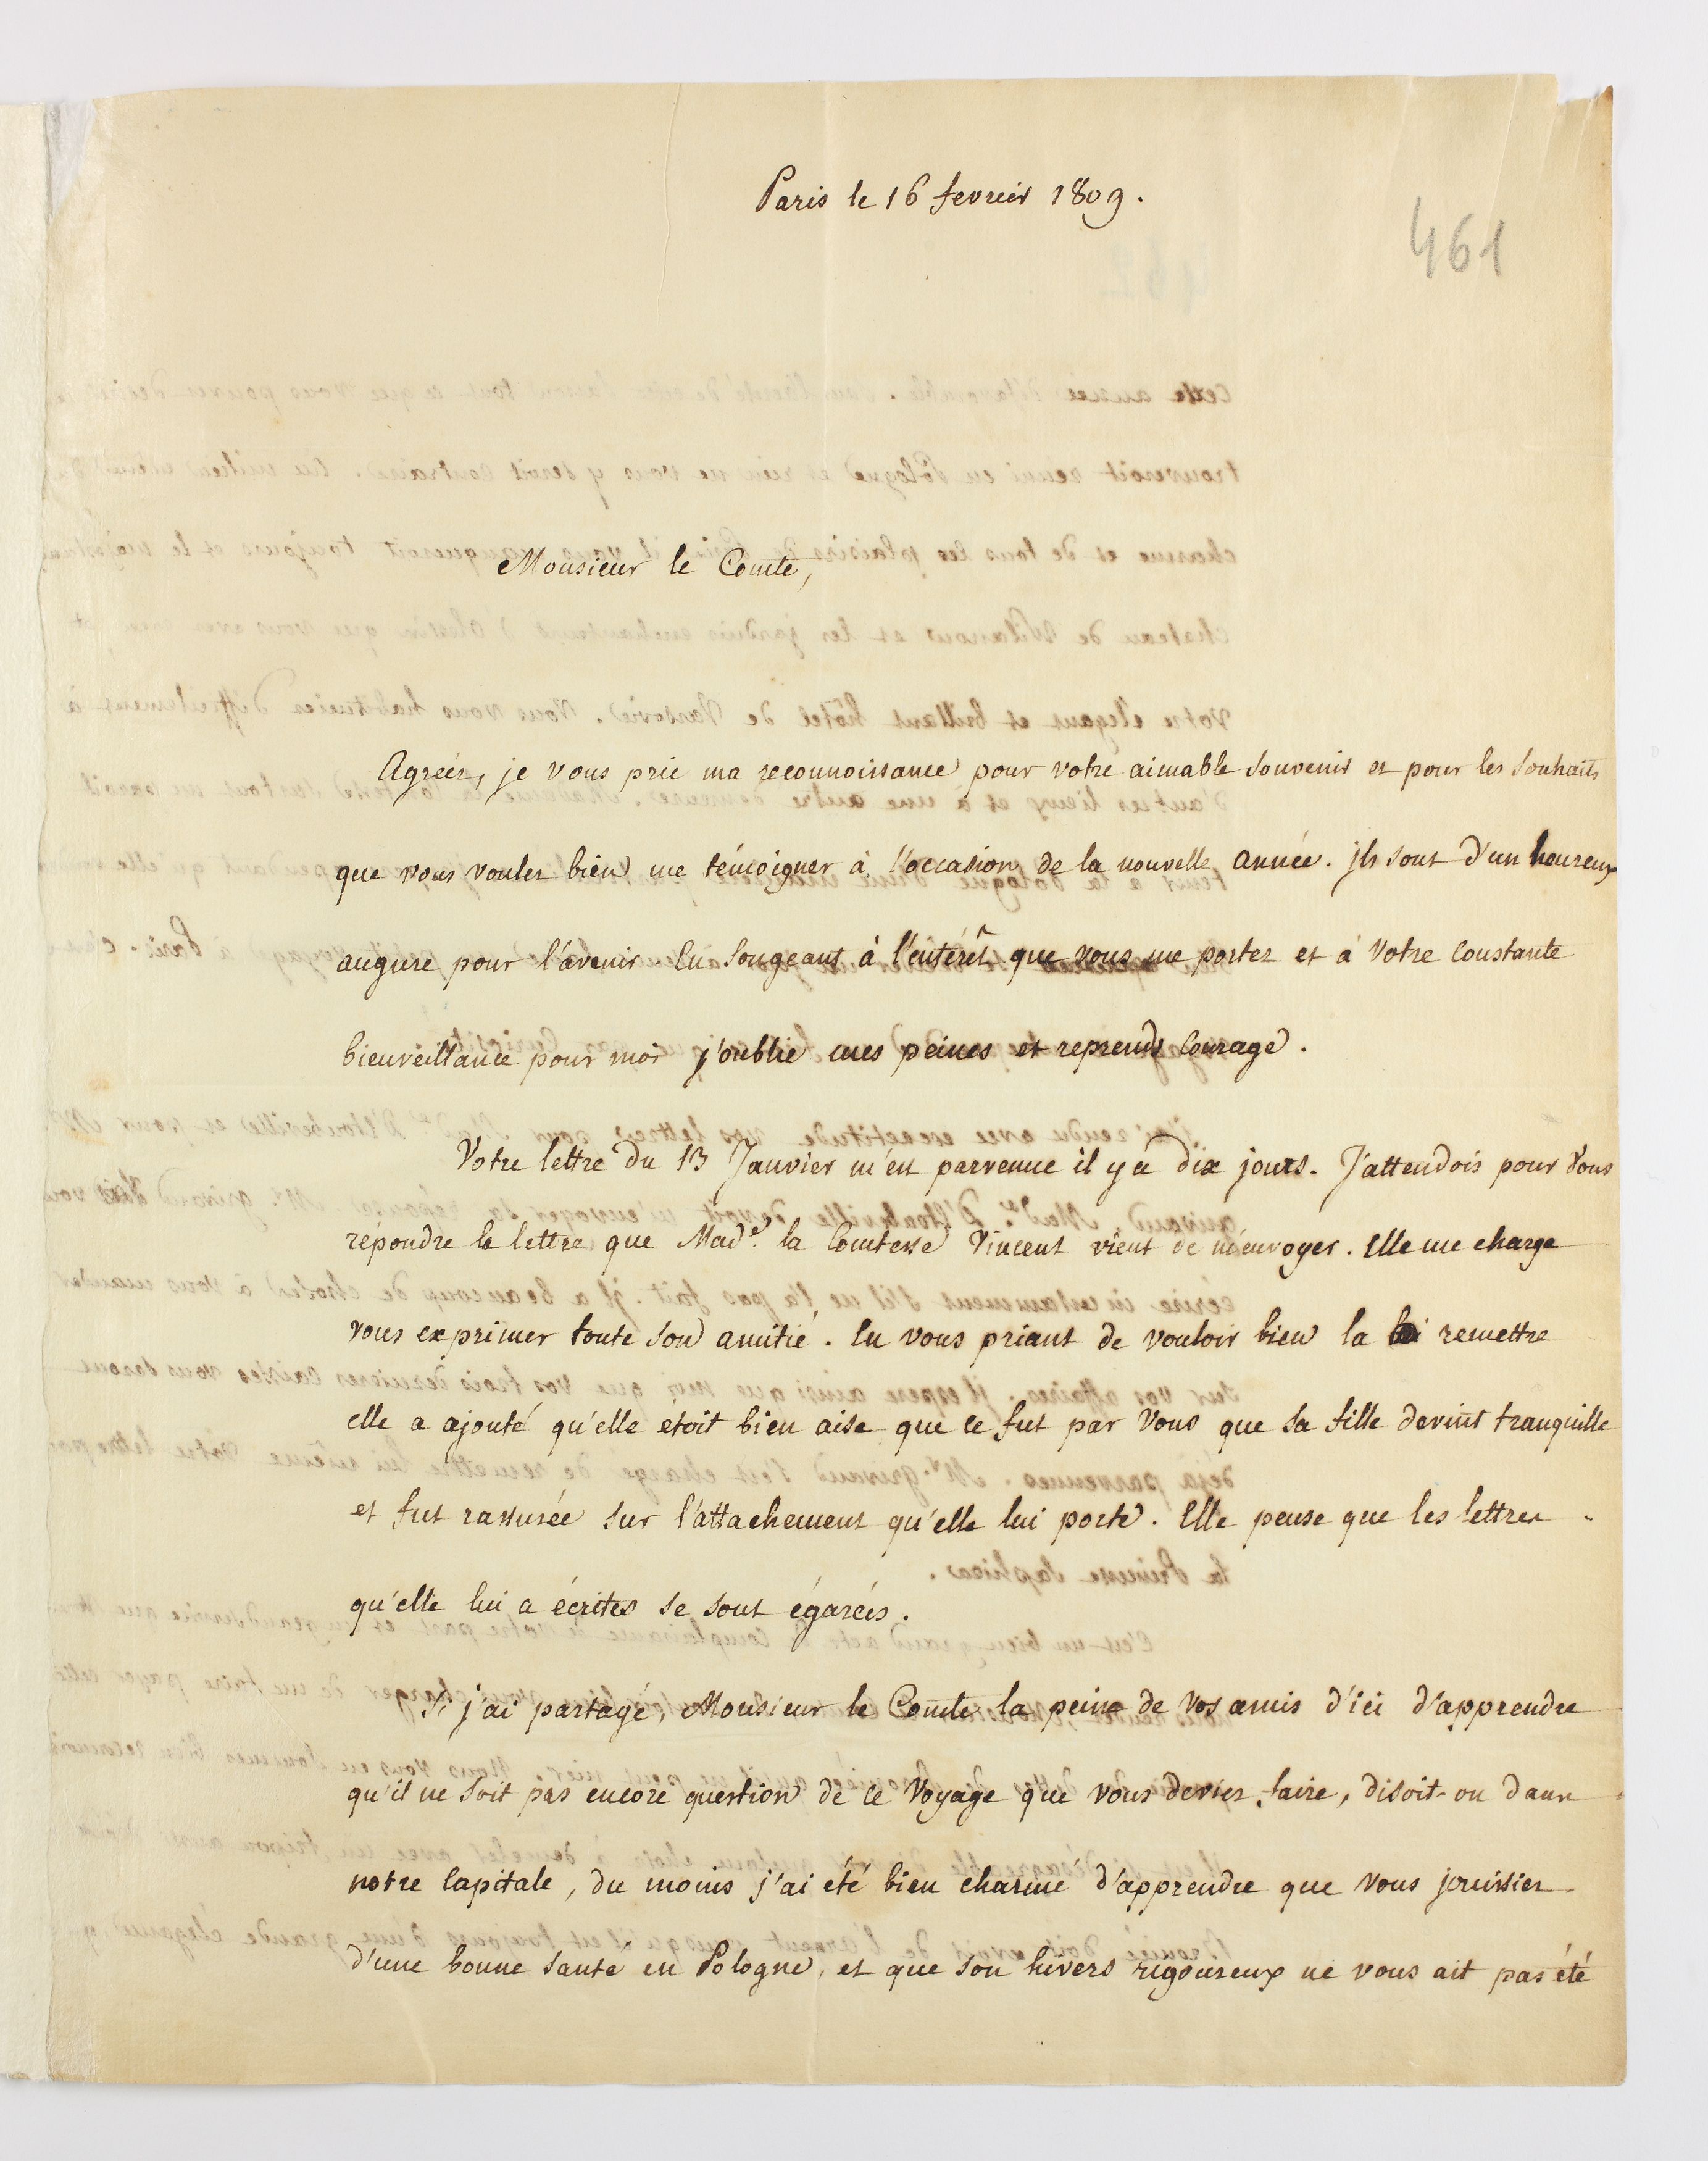 Paris le 16 fevrier 1809.
461
Monsieur le Comte,
Agréer, je vous prie ma reconnoissance pour votre aimable souvenir et pour les souhaits
que vous voulez bien me témoigner à l'occasion de la nouvelle année. jls sont d'un heureux
augure pour l'avenir En songeant à l'intérêt que vous me portez et à votre constante
bienveillance pour moi j'oublie mes peines et reprends courage.
Votre lettre du 13 Janvier m'est parvenue il y a dix jours. J'attendois pour vous
répondre la lettre que Made. la Comtesse Vincent vient de m'envoyer. Elle me charge
vous exprimer toute son amitié. En vous priant de vouloir bien la remettre
elle a ajouté qu'elle étoit bien aise que ce fut par vous que sa fille devint tranquille
et fut rassurée sur l'attachement qu'elle lui porte. Elle pense que les lettres
qu'elle lui a écrites se sont égarées.
Si j'ai partagé, Monsieur le Comte la peine de vos amis d'ici d'apprendre
qu'il ne soit pas encore question de ce voyage que vous deviez faire, disoit-on dans
notre Capitale, du moins j'ai été bien charmé d'apprendre que vous jouissiez
d'une bonne santé en Pologne, et que son hivers rigoureux ne vous ait pas été